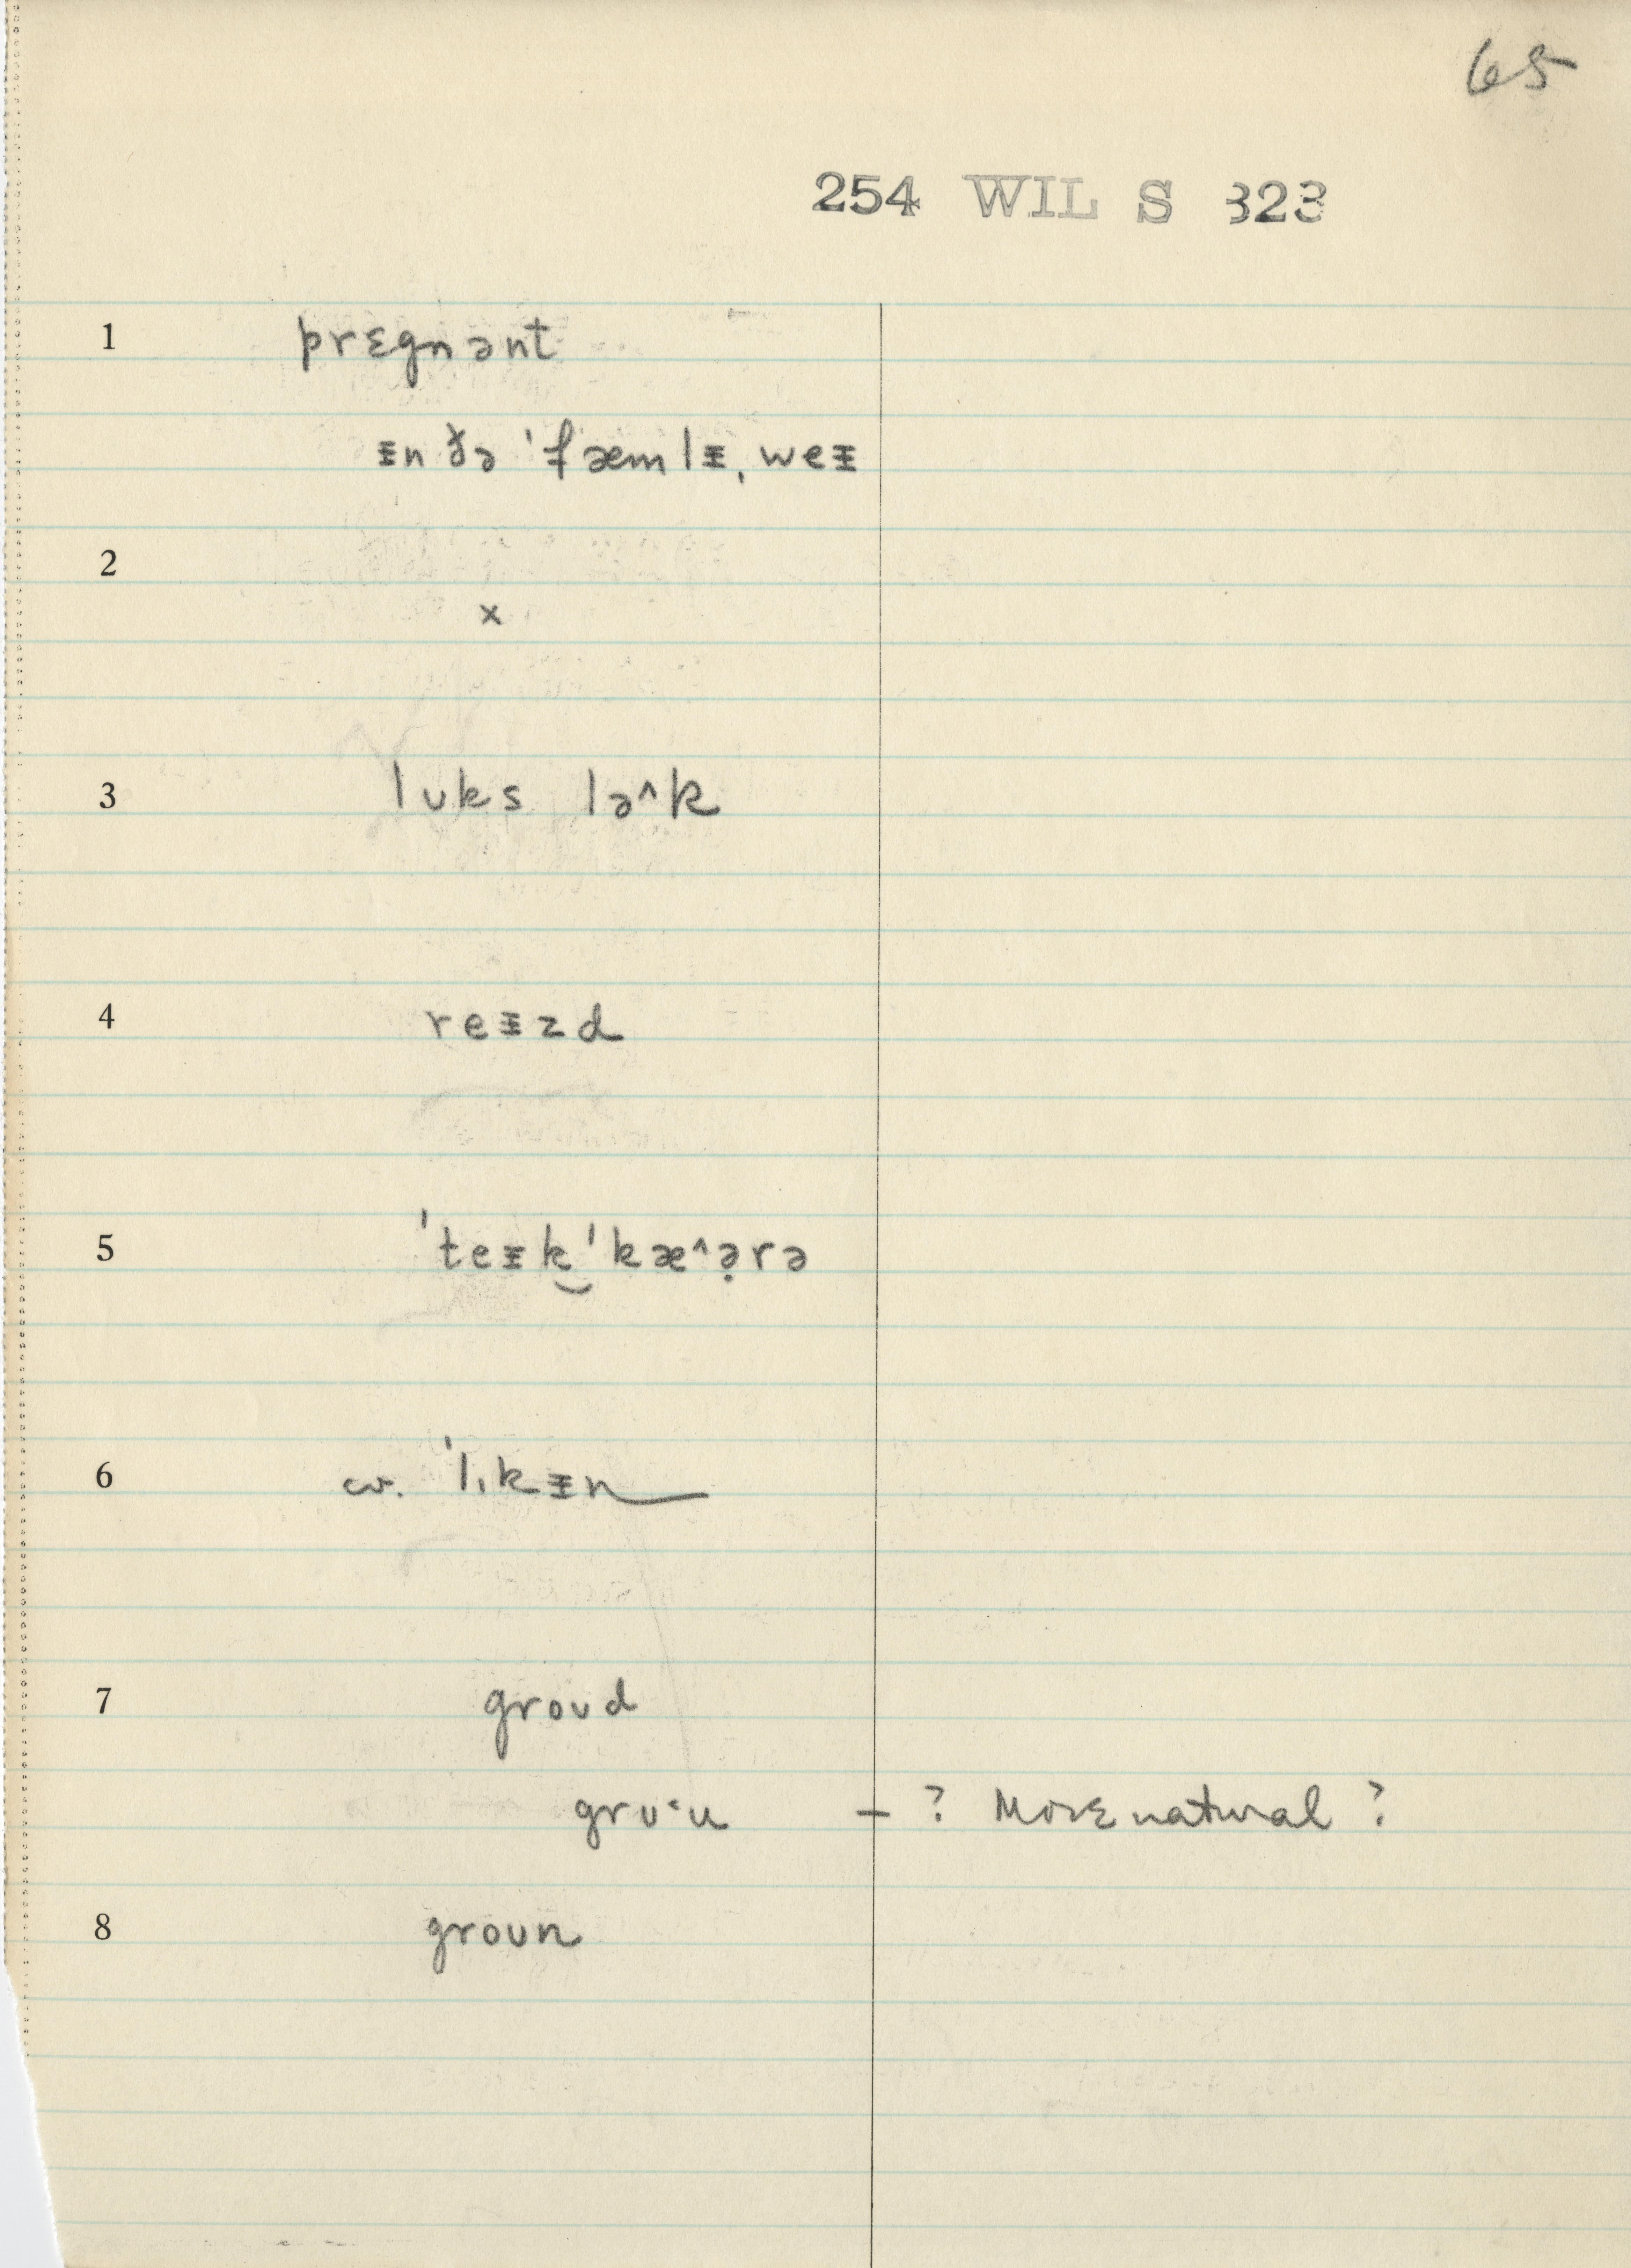 65
254 WIL S 323
1 prɛgnənt
ᵻn ðə ˈfæmlᵻˌweᵻ
2
×
3 lʊks lə^k
4 reᵻzd
5 ˈteᵻk‿ˈkæ^ə̣rə
6 cv. ˈlıkᵻn
7 groʊd
grʊ·u – ? More natural ?
8 groʊn